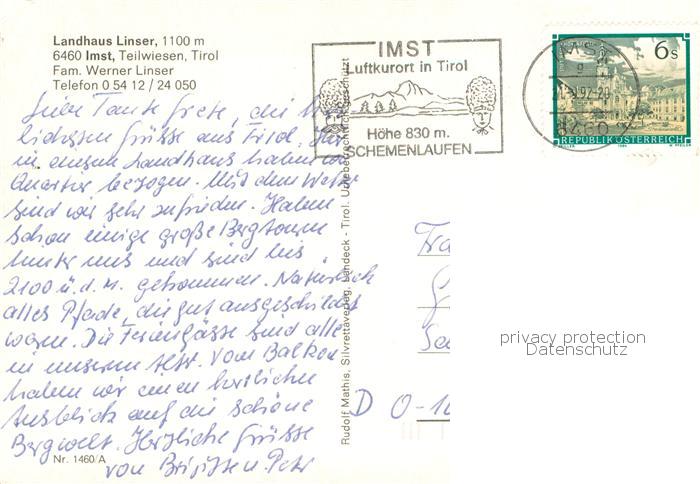 Landhaus Linser, 1100 m
6460 Imst, Teilwiesen, Tirol
Fam. Werner Linser
Telefon 0 54 12 / 24 050
Liebe Tante Grete, die
lichsten Grüsse aus Tirol. Hier
in diesem Landhaus haben wir
Quartier bezogen. Mit dem Wetter
sind wir sehr zufrieden. Haben
schon einige große Bergtouren
hinter uns und sind bis
2100 ü.d.M. gekommen. Natürlich
alles Pfade, die gut ausgeschildert
waren. Die Feriengäste sind alle
in unserem Alter. Vom Balkon
haben wir einen herrlichen
Ausblick auf die schöne
Bergwelt. Herzliche Grüsse
von Brigitte u. Peter
Nr. 1460/A
Rudolf Mathis, Silvrettaverlag, Landeck - Tirol. Urheberrechtlich geschützt
IMST
Luftkurort in Tirol
Höhe 830 m.
SCHEMENLAUFEN
IMST
6460
6s
REPUBLIK ÖSTERREICH
D O-1
privacy protection
Datenschutz